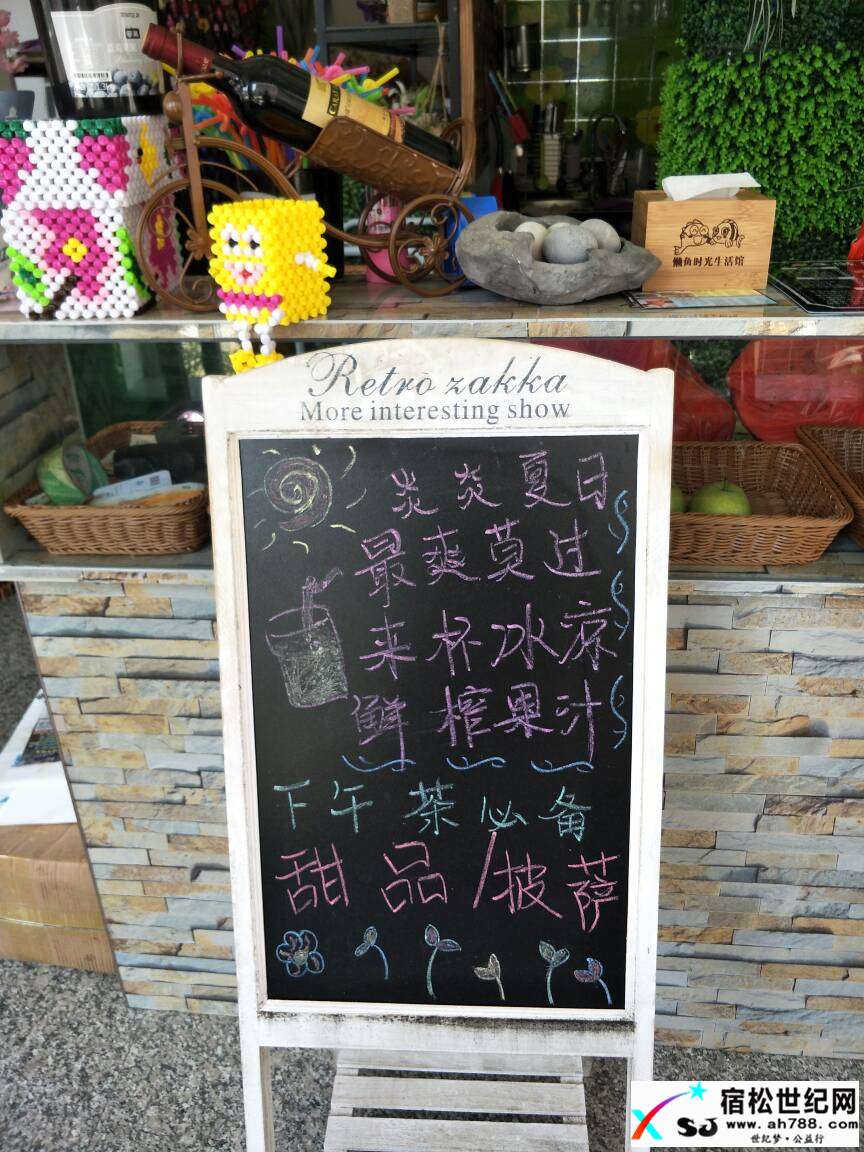 懒鱼时光生活馆
Retro zakka
More interesting show
炎炎夏日
最爽莫过
来杯冰凉
鲜榨果汁
下午茶必备
甜品/披萨
XSJ
宿松世纪网
www.ah788.com
世纪梦·公益行